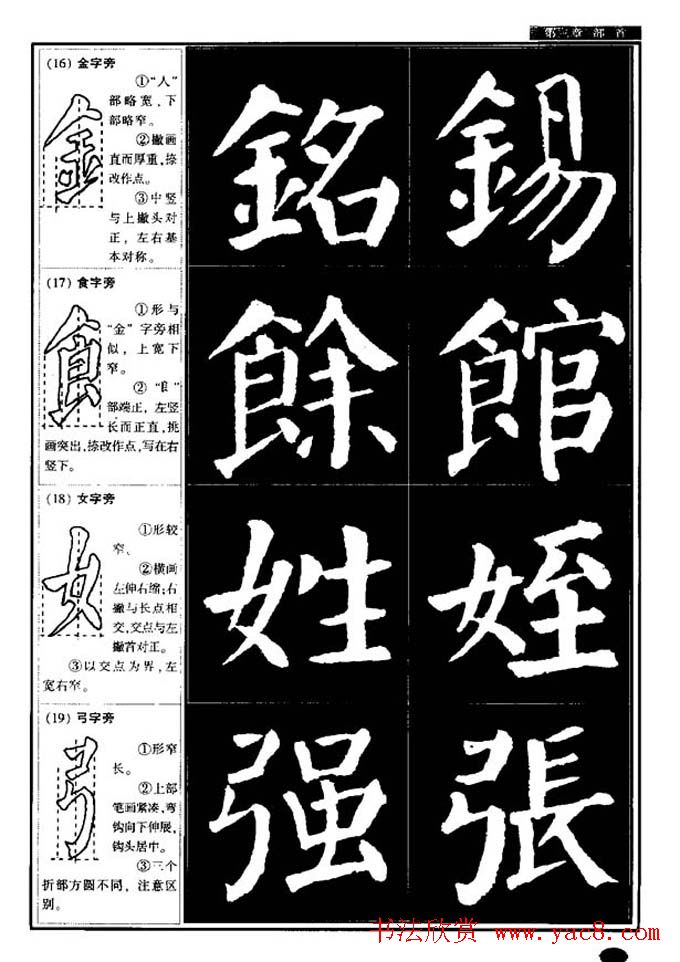 第三章 部 首
(16) 金字旁
①“人”
部略宽，下
部略窄。
②撇画
直而厚重，捺
改作点。
③中竖
与上撇头对
正，左右基
本对称。
銘 錫
(17) 食字旁
①形与
“金”字旁相
似，上宽下
窄。
部端正，左竖
长而正直，挑
画突出，捺改作点，写在右
竖下。
餘 館
(18) 女字旁
①形较
窄。
②横画
左伸右缩；右
撇与长点相
交，交点与左
撇首对正。
③以交点为界，左
宽右窄。
姓 姪
(19) 弓字旁
①形窄
长。
②上部
笔画紧凑，弯
钩向下伸展，
钩头居中。
③三个
折部方圆不同，注意区
别。
强 張
书法欣赏 www.yac8.com